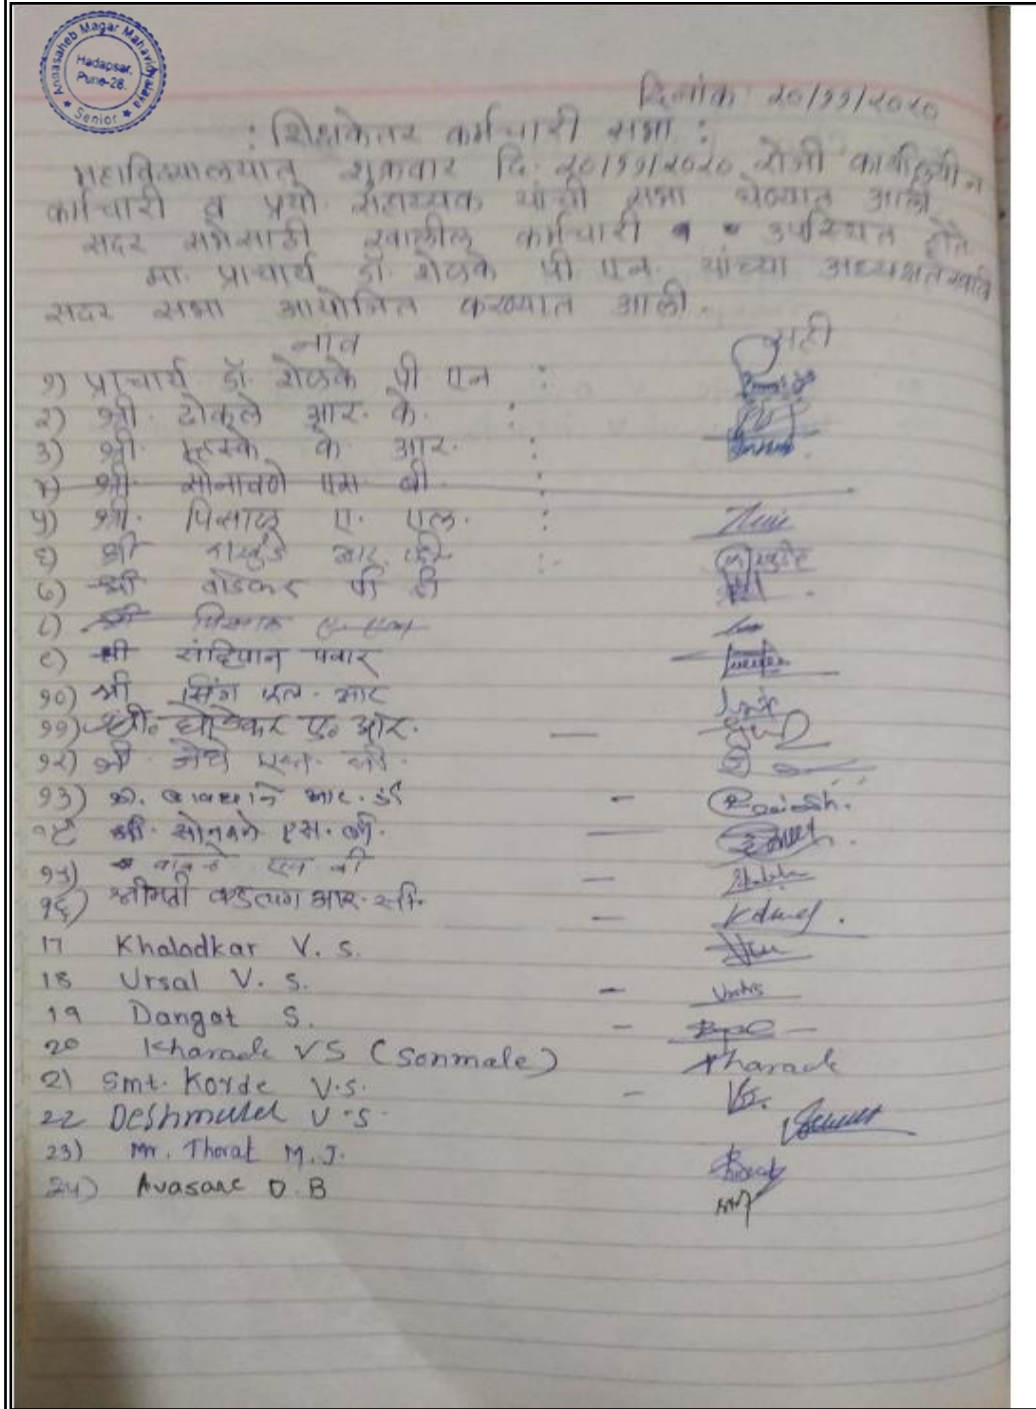 Annasaheb Magar Mahavidyalaya
Hadapsar,
Pune-28.
★ Senior ★
दिनांक २०/११/२०२०
: शिक्षकेतर कर्मचारी सभा :
महाविद्यालयात शुक्रवार दि. २०/११/२०२० रोजी कार्यालयीन
कर्मचारी व प्रयो. सहाय्यक यांची सभा घेण्यात आली.
सदर सभेसाठी खालील कर्मचारी उपस्थित होते
मा. प्राचार्य डॉ. शेळके पी एन. यांच्या अध्यक्षतेखाली
सदर सभा आयोजित करण्यात आली.
नांव सही
१) प्राचार्य डॉ. शेळके पी एन :
२) श्री. टोकले आर. के. :
३) श्री. म्हस्के के आर. :
४) श्री. सोनावणे एस बी. :
५) श्री. पिसाळ ए. एल. :
६) श्री आर. :-
७) श्री वाडेकर पी टी
८) श्री पिसाळ ए. एल
९) श्री संदिपान पवार
१०) श्री सिंग एल. आर
११) श्री. घोडेकर ए. आर. —
१२) श्री.
१३) श्री. आर. डी –
१४ श्री. सोनवने एस. बी. —
१५) एन बी —
१६) श्रीमती कडलग आर. सी. –
17 Khaladkar V. S.
18 Ursal V. S. –
19 Dangat S. –
20 Kharade VS (Sonmale) Kharade
21 Smt. Korde V.S. –
22 Deshmukh V.S.
23) Mr. Thorat M.J.
24) Avasare D.B